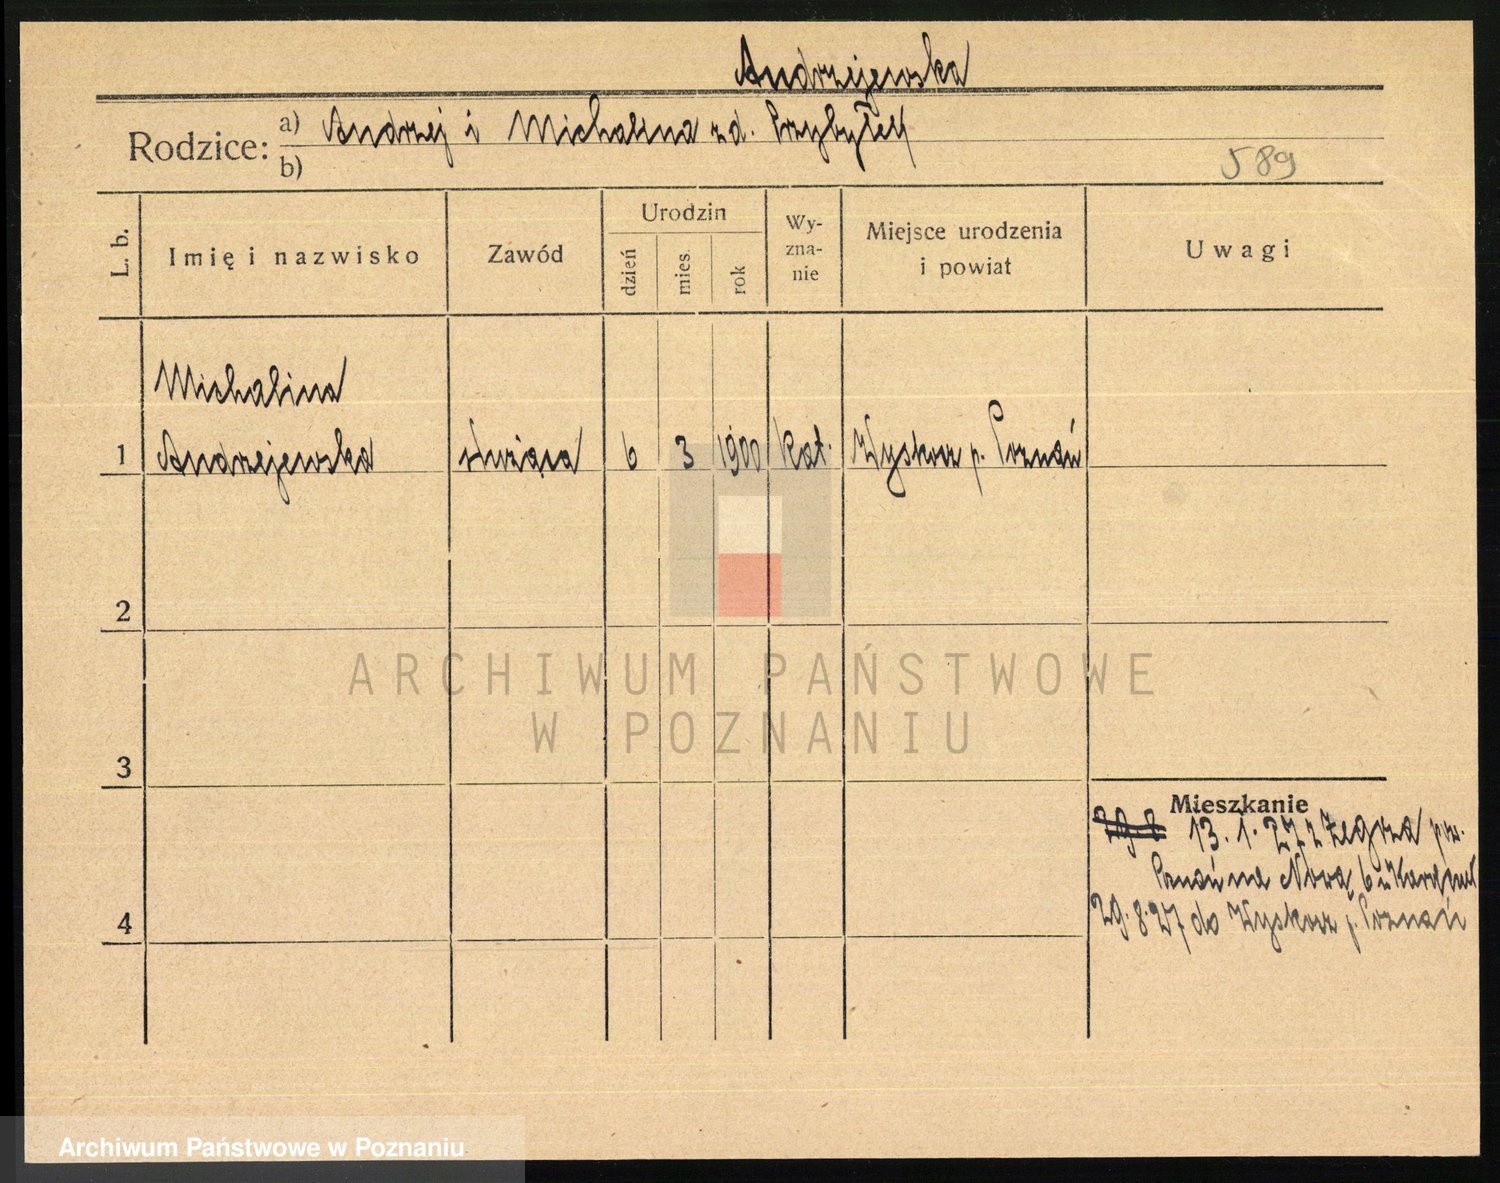 Andrzejewska
Rodzice: a) Andrzej i Michalina zd. Przybyłek
b)
589
L. b.
Imię i nazwisko
Zawód
Urodzin
dzień
mies.
rok
Wy-
zna-
nie
Miejsce urodzenia
i powiat
Uwagi
Michalina
1 Andrzejewska służąca 6 3 1900 kat. Wyskoc p. Poznań
2
ARCHIWUM PAŃSTWOWE
W POZNANIU
3
Mieszkanie
29 8 13. 1. 27 z Zegrza
Poznań na Nową 6 u
4
29. 8. 27 do Wyskoc p. Poznań
Archiwum Państwowe w Poznaniu